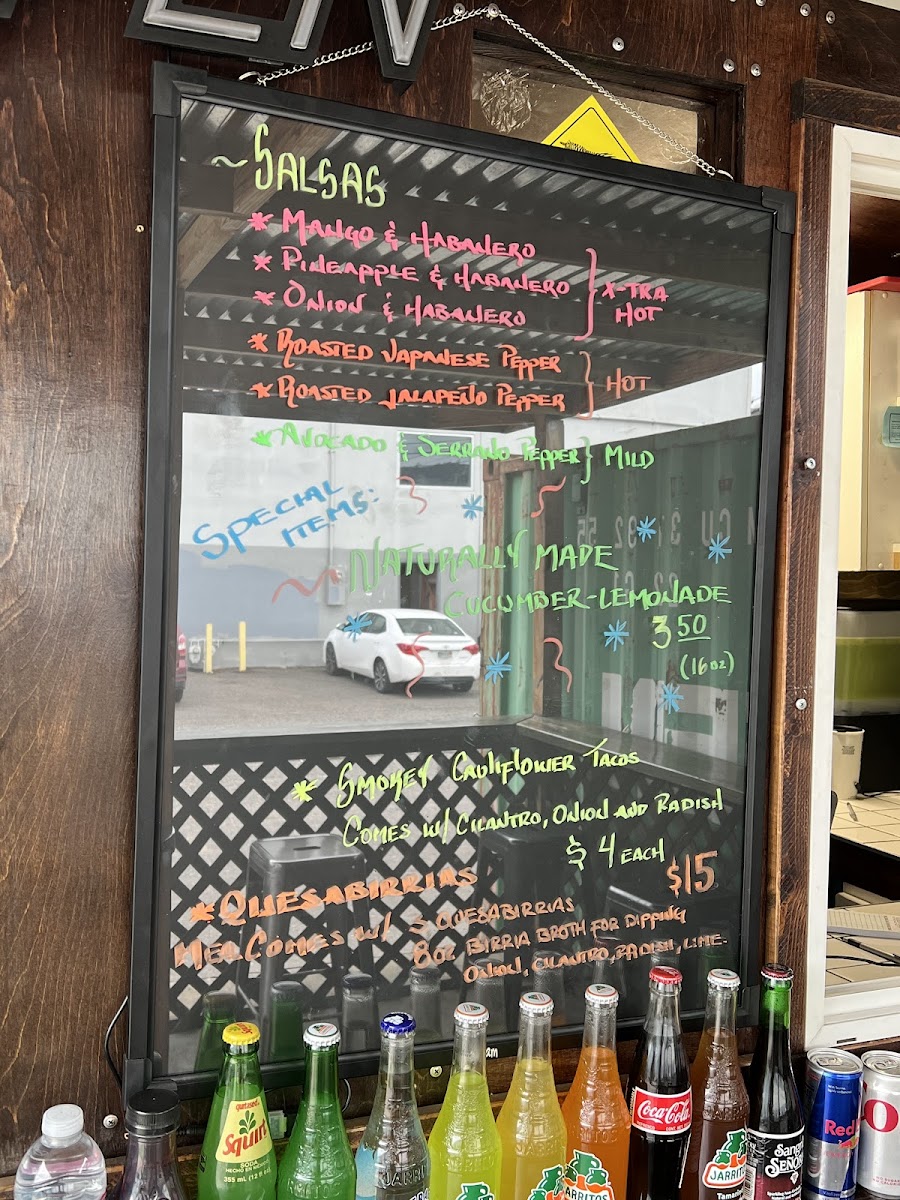 ~ Salsas
* Mango & Habanero
* Pineapple & Habanero
* Onion & Habanero
} X-tra Hot
* Roasted Japanese Pepper
* Roasted Jalapeño Pepper
} Hot
* Avocado & Serrano Pepper } Mild
Special Items:
Naturally made
Cucumber-Lemonade
3 50
(16oz)
* Smokey Cauliflower Tacos
Comes w/ Cilantro, Onion and Radish
$4 each
* Quesabirrias $15
Meal Comes w/ 3 Quesabirrias
8oz Birria Broth for Dipping
Onion, Cilantro, Radish, Lime.
Squirt
SODA
HECHO EN MÉXICO
355 ml
Coca-Cola
JARRITOS
JARRITOS
Sangria
SEÑORIAL
Red